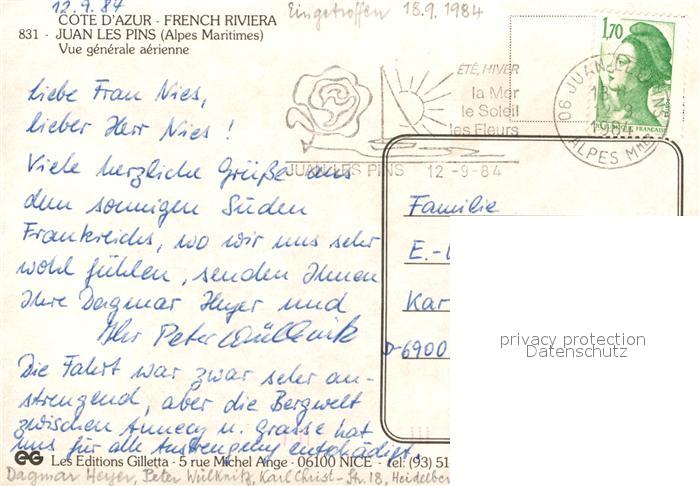 12.9.84
Eingetroffen 18.9.1984
CÔTE D'AZUR - FRENCH RIVIERA
831 - JUAN LES PINS (Alpes Maritimes)
Vue générale aérienne
1,70
ÉTÉ, HIVER
la Mer
le Soleil
les Fleurs
JUAN LES PINS 12 -9-84
06 JUAN LES PINS
1984
ALPES Mmes
Liebe Frau Nies,
lieber Herr Nies!
Viele herzliche Grüße aus
dem sonnigen Süden
Frankreichs, wo wir uns sehr
wohl fühlen, senden Ihnen
Ihre Dagmar Heyer und
Ihr Peter Wülknitz
Die Fahrt war zwar sehr an-
strengend, aber die Bergwelt
zwischen Annecy u. Grasse hat
uns für alle Anstrengung entschädigt.
Familie
E.-
Kar
D-6900
privacy protection
Datenschutz
EG Les Editions Gilletta - 5 rue Michel Ange - 06100 NICE - Tel: (93) 51
Dagmar Heyer, Peter Wülknitz, Karl Christ-Str. 18, Heidelber